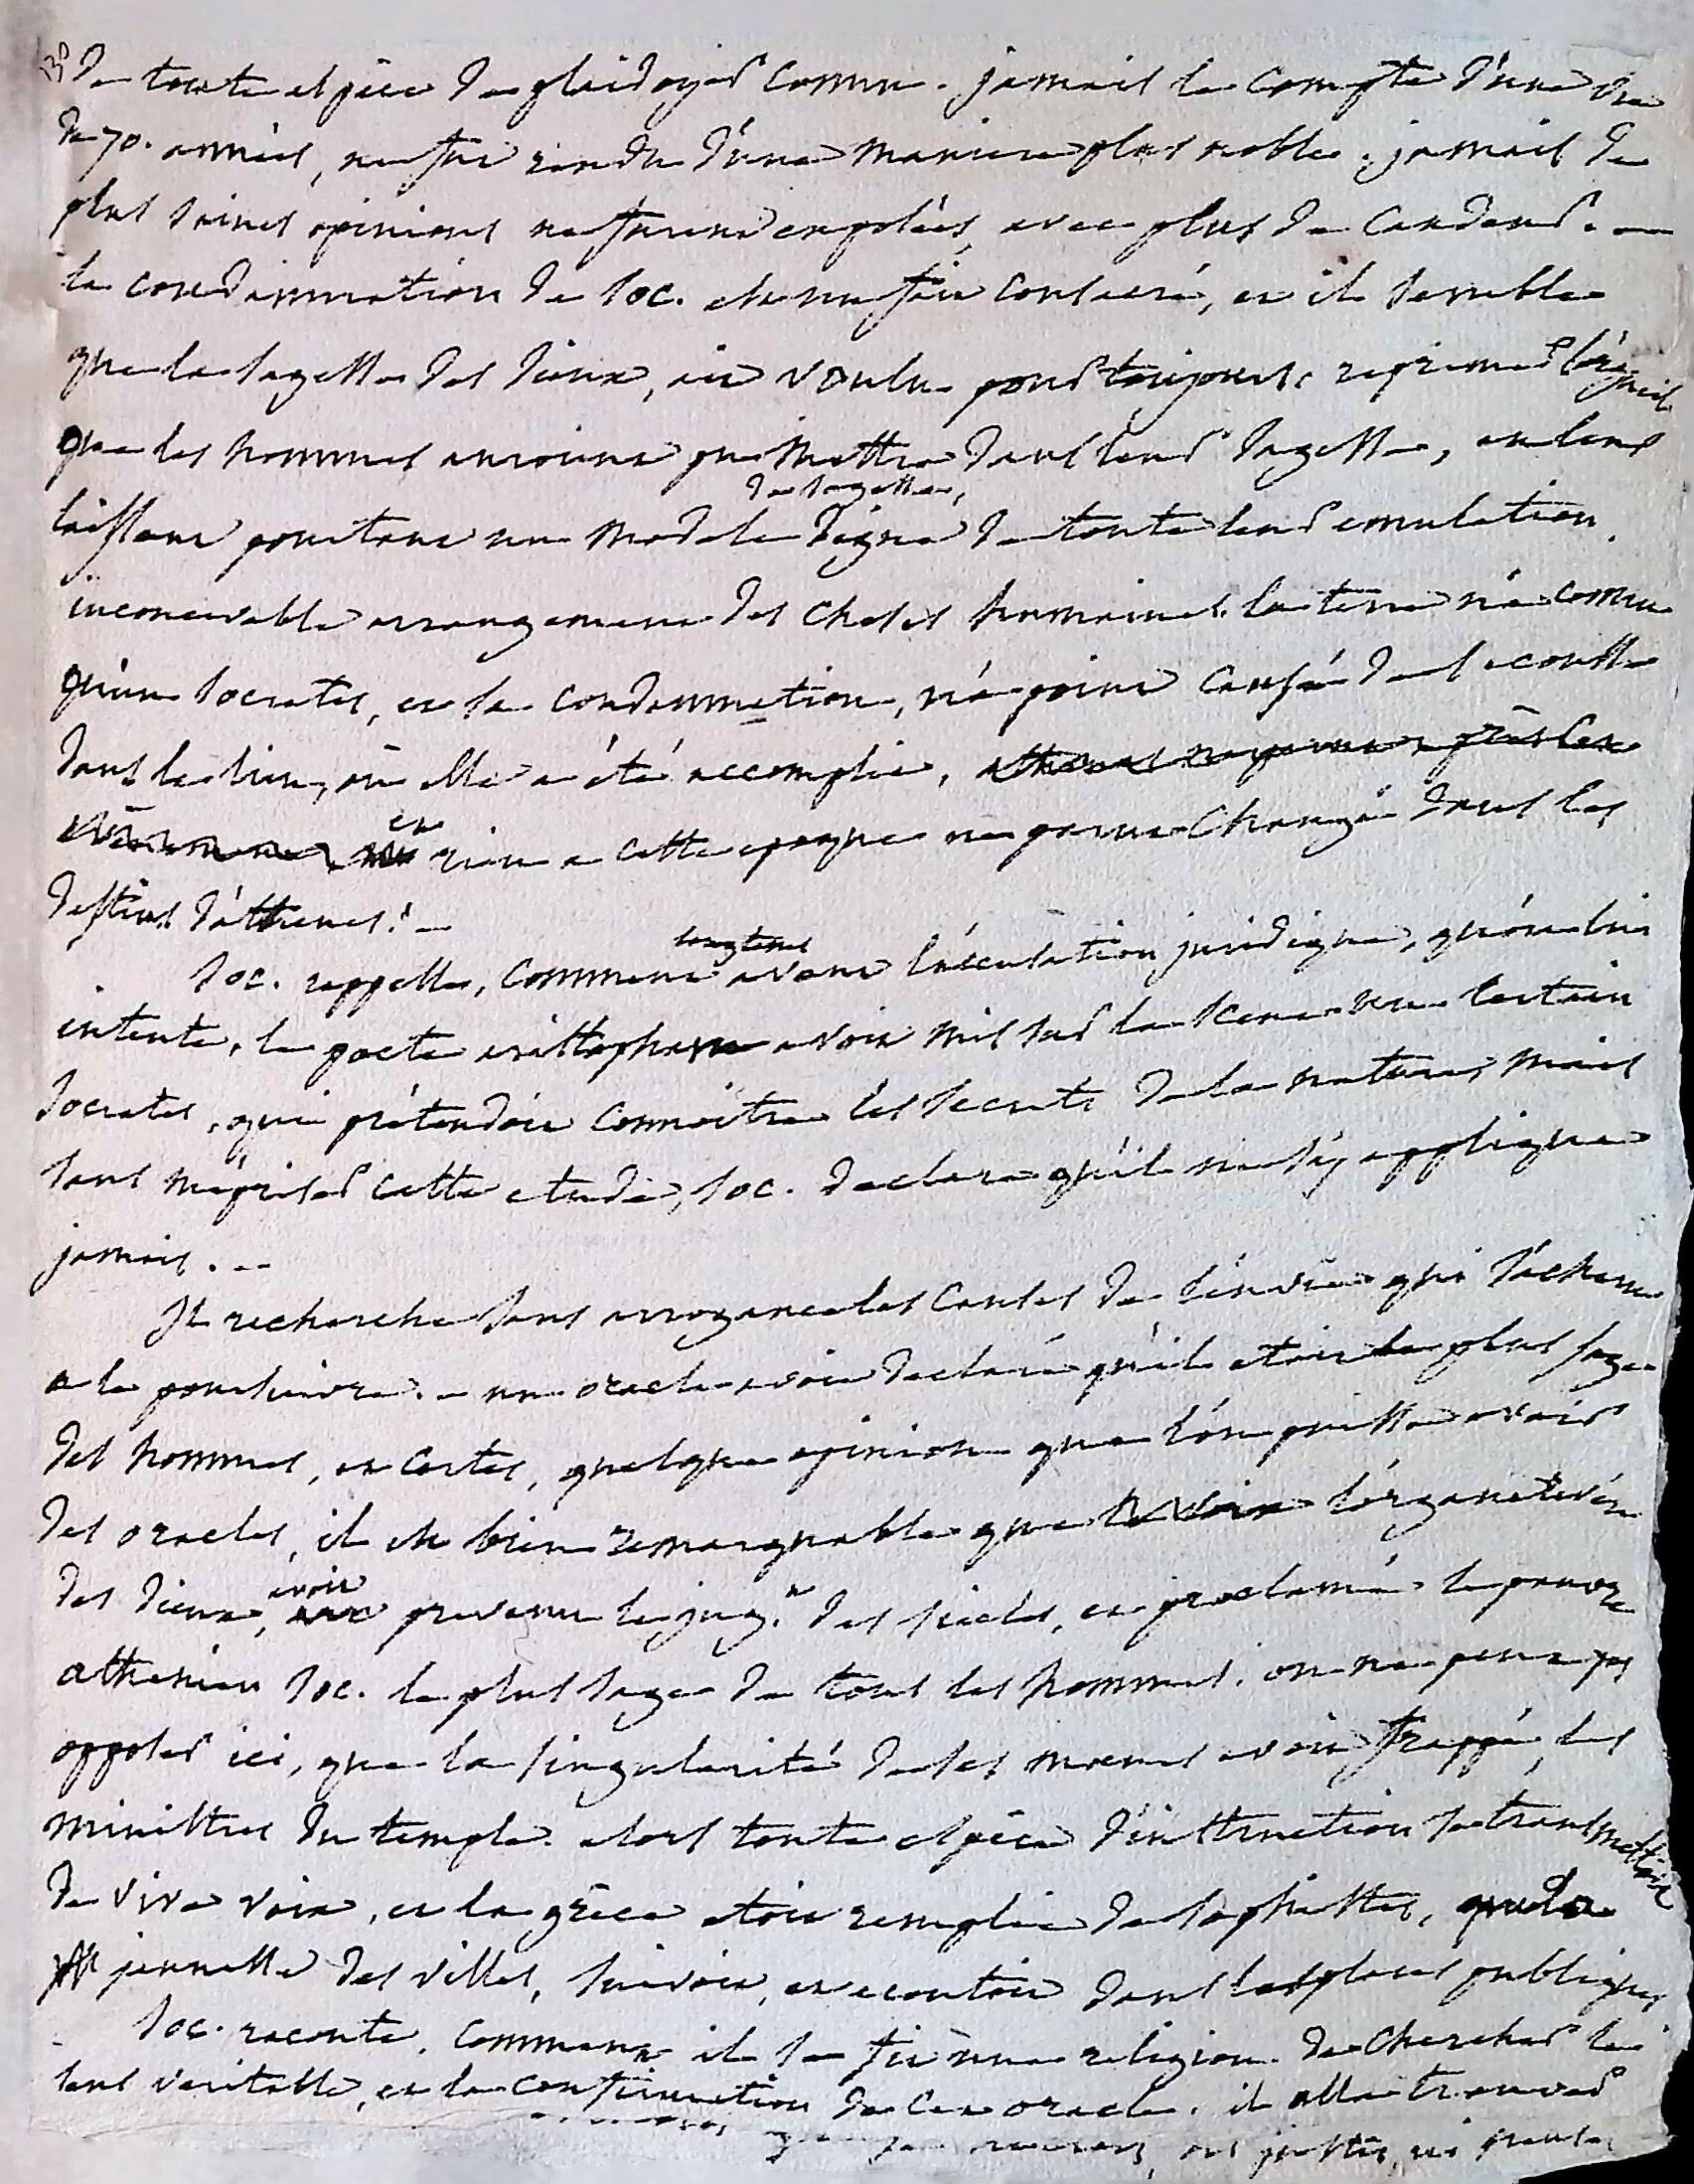 de toute espèce de plaidoyer connu. jamais le compte d'une vie
de 70. années, ne fut rendu d'une maniere plus noble. jamais de
plus saines opinions ne furent exposées, avec plus de candeur. —
la condamnation de Soc. est un fait consacré, et il semble
que la sagesse des dieux, ait voulu pour toujours reprimer l'orgueil
que les hommes auroient pu mettre dans leur sagesse, en leur
laissant pourtant un modele de sagesse, digne de toute leur emulation.
inconcevable arrangement des choses humaines. la terre n'a connu
qu'un Socrates, et sa condamnation, n'a point causé de secousse
dans le lieu, où elle a été accomplie,
et rien a cette epoque ne parut changé dans les
destins d'athenes! —
Soc. rappelle, comment longtems avant l'accusation juridique, qu'on lui
intente, le poete aristophane avoit mis sur la scene un certain
Socrates, qui prétendoit connoitre les secrets de la nature, mais
sans mépriser cette etude, Soc. declare qu'il ne s'y appliqua
jamais. —
Il recherche sans arrogance les causes de l'envie qui s'acharne
a le poursuivre. — un oracle avoit declaré qu'il etoit le plus sage
des hommes, et certes, quelque opinion que l'on puisse avoir
des oracles, il est bien remarquable que l'organe révéré
des dieux, avoit prevenu le jug.t des siecles, et proclamé le pauvre
athenien Soc. le plus sage de tous les hommes. on ne peut pas
opposer ici, que la singularité de ses moeurs avoit frappé les
ministres du temple. alors toute espèce d'instruction se transmettoit
de vive voix, et la grèce etoit remplie de sophistes, que la
jeunesse des villes, suivoit, et ecoutoit dans les places publiques
Soc. raconte, comment il se fit une religion de chercher le
sens veritable, et la confirmation de cet oracle. il alla trouver